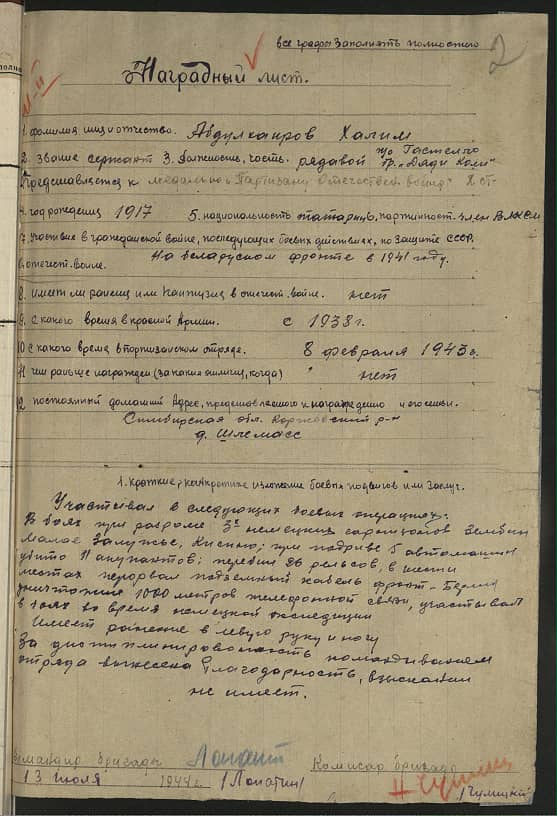 все графы заполнять полностью
2
Наградный лист.
1. фамилия имя и отчество. Абдулкаиров Халим
2. Звание сержант 3. Должность, часть. рядовой п/о Гастелло
бр. "Дяди Коли"
Представляется к медалью "Партизану Отечествен. войны" II ст.
4. год рождения 1917 5. национальность татарин 6. партийност. член ВЛКСМ
7. Участие в гражданской войне, последующих боевых действиях, по защите СССР.
и отечест. войне. На Беларуском фронте в 1941 году.
8. имеет ли ранения или контузия в отечест. войне. нет
9. с какого время в красной Армии. с 1938 г.
10 с какого время в портизанском отряде. 8 февраля 1943 г.
11 чем раньше награжден (за какие отличия, когда) нет
12 постоянный домашний Адрес, представленного к награждению и его семьи.
Симбирская обл. р-н
д. Шлемасс
1. Краткие, конкретное изложение боевых подвигов или заслуг.
Участвовал в следующих боевых операциях.
В боях при разгроме 3х немецких гарнизонов Зембин
Малое Залужье, Кискно; при подриве 5 автомашин
убито 11 окупантов; перебил 26 рельсов, в шести
местах перорвал подземный кабель фронт-Берлин
уничтожил 1000 метров телефонной связи, участвовал
в боях во время немецкой экспедиции
Имеет ранение в левую руку и ногу
За дисциплинированность командиванием
отряда вынесена благодарность, взыскании
не имеет.
Командир бригады Лопатин Комисар бригады
13 июля 1944 г. /Лопатин/
/Чулицкий